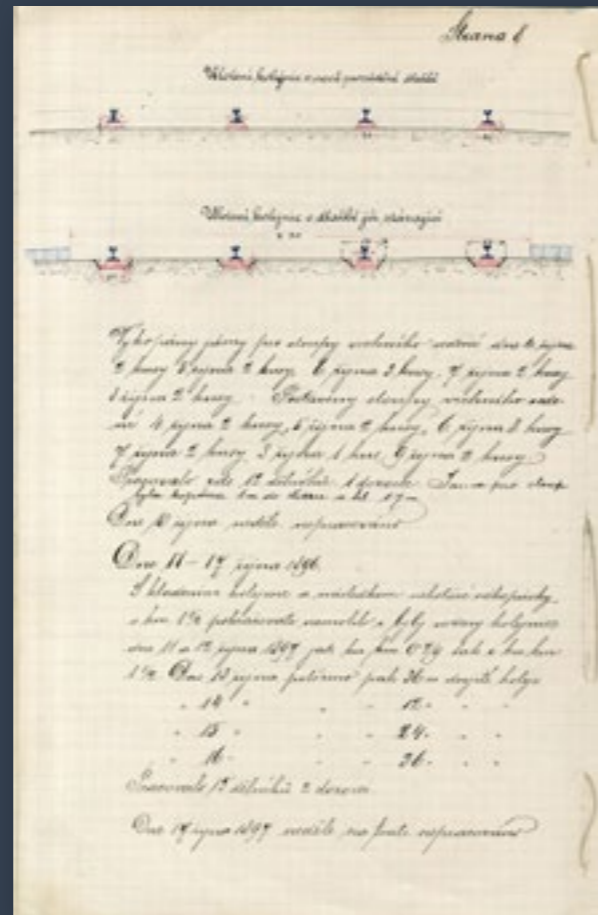 Strana 8
Uložení kolejnice v nově prováděné dlažbě
Uložení kolejnice v dlažbě již stávající
Vykopány jámy pro sloupy vrchního vedení dne 4 října
2 kusy 5 října 2 kusy, 6 října 3 kusy, 7 října 2 kusy
8 října 2 kusy. Postaveny sloupy vrchního vede-
ní 4 října 2 kusy, 5 října 2 kusy, 6 října 3 kusy
7 října 2 kusy, 8 října 1 kus, 9 října 2 kusy
Pracovalo zde 12 dělníků 1 dozorce. Jáma pro sloup
byla kopána
Dne 10 října neděle nepracováno
Dne 11 – 17 října 1896.
S kladením kolejnic a
v km pokračováno
dne 11 a 12 října 1897 km tak v km
Dne 13 října položeno 36 m dvojité koleje
" 14 " " " 12 " " "
" 15 " " " 24 " " "
" 16 " " " 36 " " "
Pracovalo 15 dělníků 2 dozorci
Dne 17 října 1897 neděle, na trati nepracováno